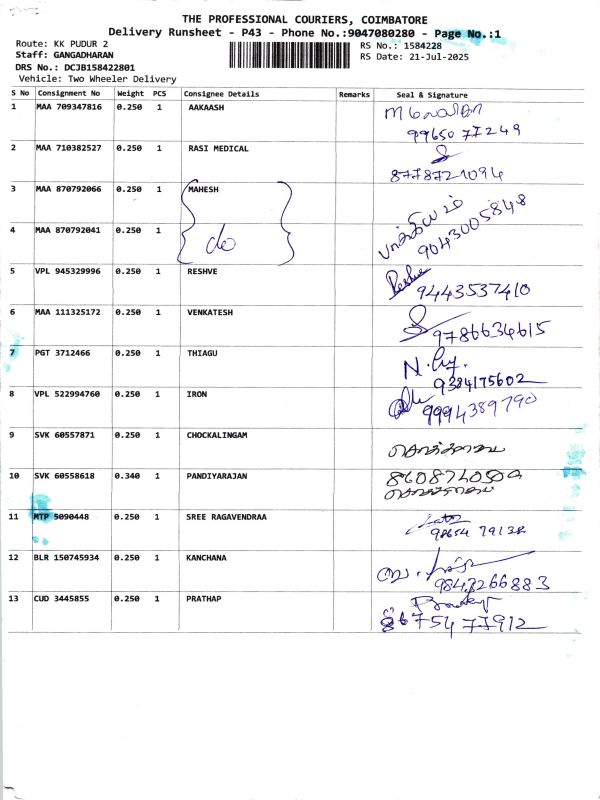 THE PROFESSIONAL COURIERS, COIMBATORE
Delivery Runsheet - P43 - Phone No.:9047080280 - Page No.:1
Route: KK PUDUR 2
Staff: GANGADHARAN
DRS No.: DCJB158422801
Vehicle: Two Wheeler Delivery
RS No.: 1584228
RS Date: 21-Jul-2025
S No Consignment No Weight PCS Consignee Details Remarks Seal & Signature
1 MAA 709347816 0.250 1 AAKAASH
99650 77249
2 MAA 710382527 0.250 1 RASI MEDICAL
8778721094
3 MAA 870792066 0.250 1 MAHESH
4 MAA 870792041 0.250 1 do
9043005848
5 VPL 945329996 0.250 1 RESHVE Reshve
9443537410
6 MAA 111325172 0.250 1 VENKATESH
9786634615
7 PGT 3712466 0.250 1 THIAGU
9384175602
8 VPL 522994760 0.250 1 IRON
9994389790
9 SVK 60557871 0.250 1 CHOCKALINGAM
10 SVK 60558618 0.340 1 PANDIYARAJAN
11 MTP 5090448 0.250 1 SREE RAGAVENDRAA
98654 79138
12 BLR 150745934 0.250 1 KANCHANA
9843266883
13 CUD 3445855 0.250 1 PRATHAP
86754 77912